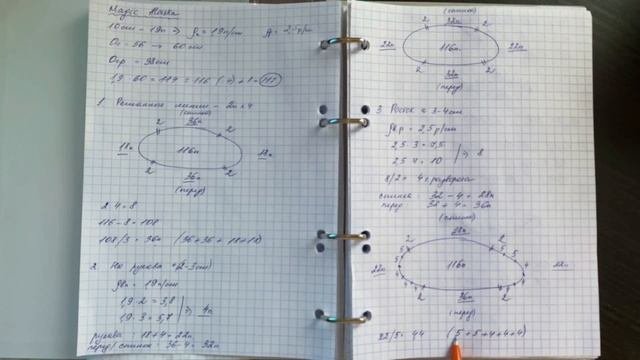 Magic Alaska
10см - 19п ⇒ Пг = 1,9п/см
Ог - 56 → 60см
Огр - 98см
1,9 · 60 = 114 = 116
1. Регланные линии - 2п х 4
(спинка)
36п
2 2
18п 116п 18п
2 2
36п
(перед)
2·4 = 8
116 - 8 = 108
108/3 = 36п (36+36+18+18)
2. На рукава +(2-3см)
= 1,9п/см
1,9 · 2 = 3,8
1,9 · 3 = 5,7 ⇒ 4п
рукава: 18+4 = 22п
перед/спинка: 36-4 = 32п
(спинка)
32п
2 2
22п 116п 22п
2 2
32п
(перед)
3. Росток ≈ 3-4см
= 2,5 р/см
2,5 · 3 = 7,5
2,5 · 4 = 10 ⇒ 8
8/2 = 4 разворота
спинка: 32 - 4 = 28п
перед: 32 + 4 = 36п
(спинка)
28п
2 2
5 5
5 5
22п 116п 4 22п
2 2
36п
(перед)
22/5 = 4,4 (5+5+4+4+4)